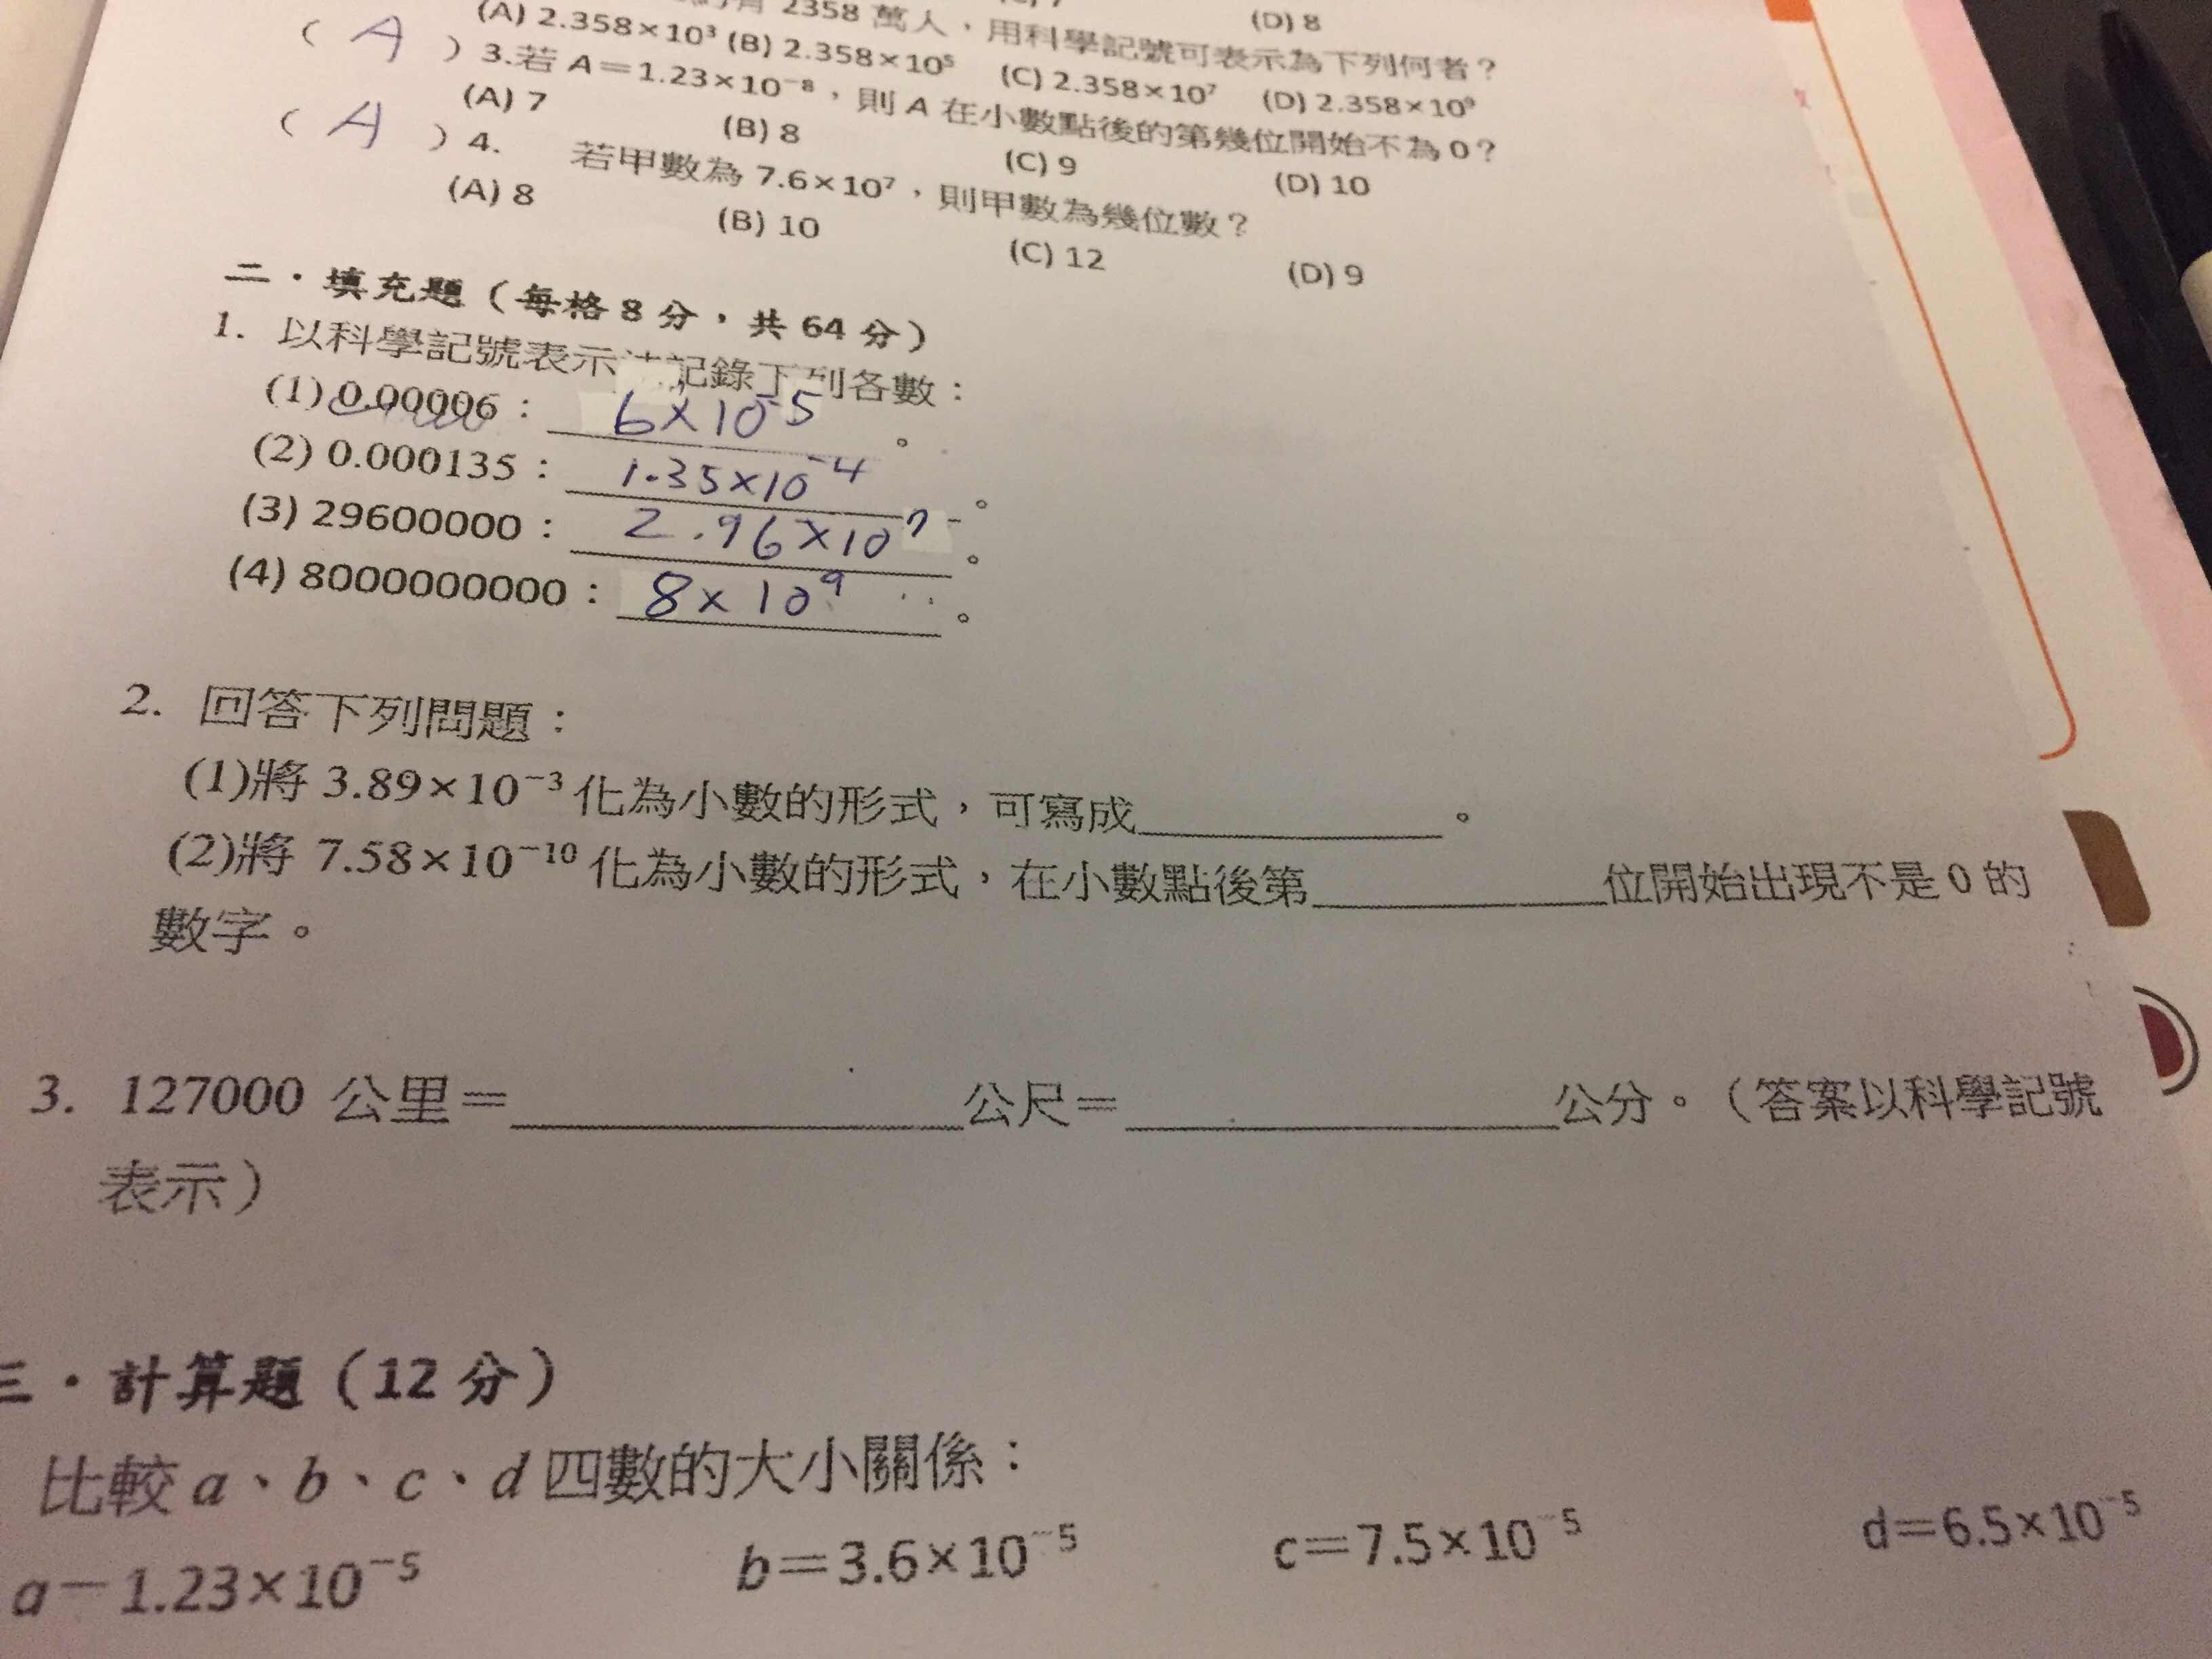 (D) 8
2358 萬人，用科學記號可表示為下列何者？
(A) 2.358×10³ (B) 2.358×10⁵ (C) 2.358×10⁷ (D) 2.358×10⁹
( A ) 3.若 A＝1.23×10⁻⁸，則 A 在小數點後的第幾位開始不為 0？
(A) 7 (B) 8 (C) 9 (D) 10
( A ) 4. 若甲數為 7.6×10⁷，則甲數為幾位數？
(A) 8 (B) 10 (C) 12 (D) 9
二．填充題（每格 8 分，共 64 分）
1. 以科學記號表示 記錄下列各數：
(1) 0.00006： 6×10⁻⁵ 。
(2) 0.000135： 1.35×10⁻⁴ 。
(3) 29600000： 2.96×10⁷ 。
(4) 8000000000： 8×10⁹ 。
2. 回答下列問題：
(1)將 3.89×10⁻³ 化為小數的形式，可寫成＿＿＿＿＿＿。
(2)將 7.58×10⁻¹⁰ 化為小數的形式，在小數點後第＿＿＿＿＿＿位開始出現不是 0 的
數字。
3. 127000 公里＝＿＿＿＿＿＿＿＿公尺＝＿＿＿＿＿＿＿＿公分。（答案以科學記號
表示）
三．計算題（12 分）
比較 a、b、c、d 四數的大小關係：
a＝1.23×10⁻⁵ b＝3.6×10⁻⁵ c＝7.5×10⁻⁵ d＝6.5×10⁻⁵